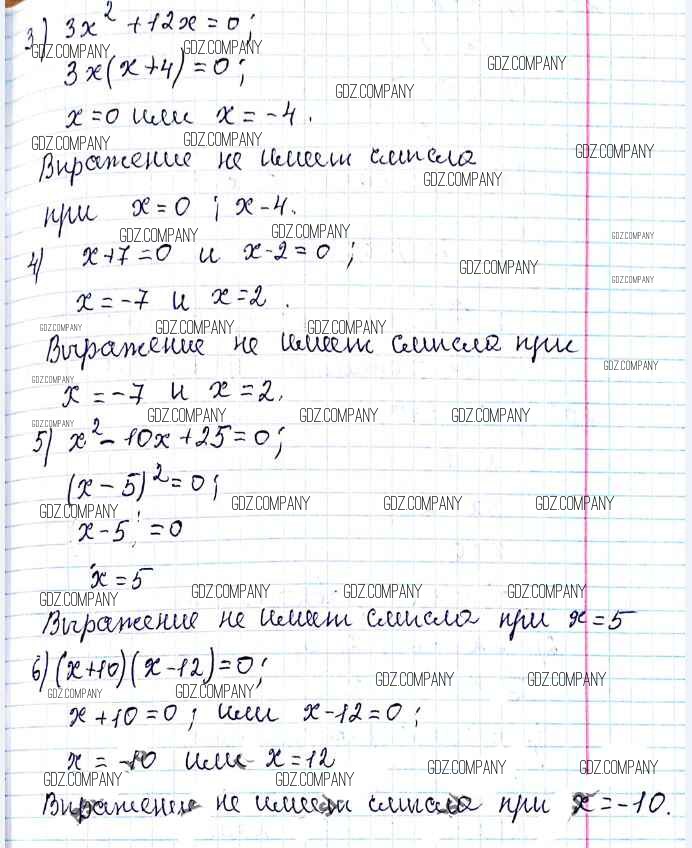 3) 3x² + 12x = 0;
3x(x+4) = 0;
x = 0 или x = -4.
Выражение не имеет смысла
при x = 0 ; x - 4.
4) x + 7 = 0 и x - 2 = 0 ;
x = -7 и x = 2 .
Выражение не имеет смысла при
x = -7 и x = 2.
5) x² - 10x + 25 = 0;
(x - 5)² = 0;
x - 5 = 0
x = 5
Выражение не имеет смысла при x = 5
6) (x+10)(x-12) = 0;
x + 10 = 0 ; или x - 12 = 0 ;
x = -10 или x = 12
Выражение не имеет смысла при x = -10.
GDZ.COMPANY GDZ.COMPANY GDZ.COMPANY
GDZ.COMPANY
GDZ.COMPANY GDZ.COMPANY GDZ.COMPANY
GDZ.COMPANY
GDZ.COMPANY GDZ.COMPANY GDZ.COMPANY
GDZ.COMPANY GDZ.COMPANY
GDZ.COMPANY GDZ.COMPANY GDZ.COMPANY
GDZ.COMPANY
GDZ.COMPANY
GDZ.COMPANY GDZ.COMPANY GDZ.COMPANY GDZ.COMPANY
GDZ.COMPANY GDZ.COMPANY GDZ.COMPANY GDZ.COMPANY
GDZ.COMPANY GDZ.COMPANY GDZ.COMPANY GDZ.COMPANY
GDZ.COMPANY GDZ.COMPANY GDZ.COMPANY GDZ.COMPANY
GDZ.COMPANY GDZ.COMPANY GDZ.COMPANY GDZ.COMPANY